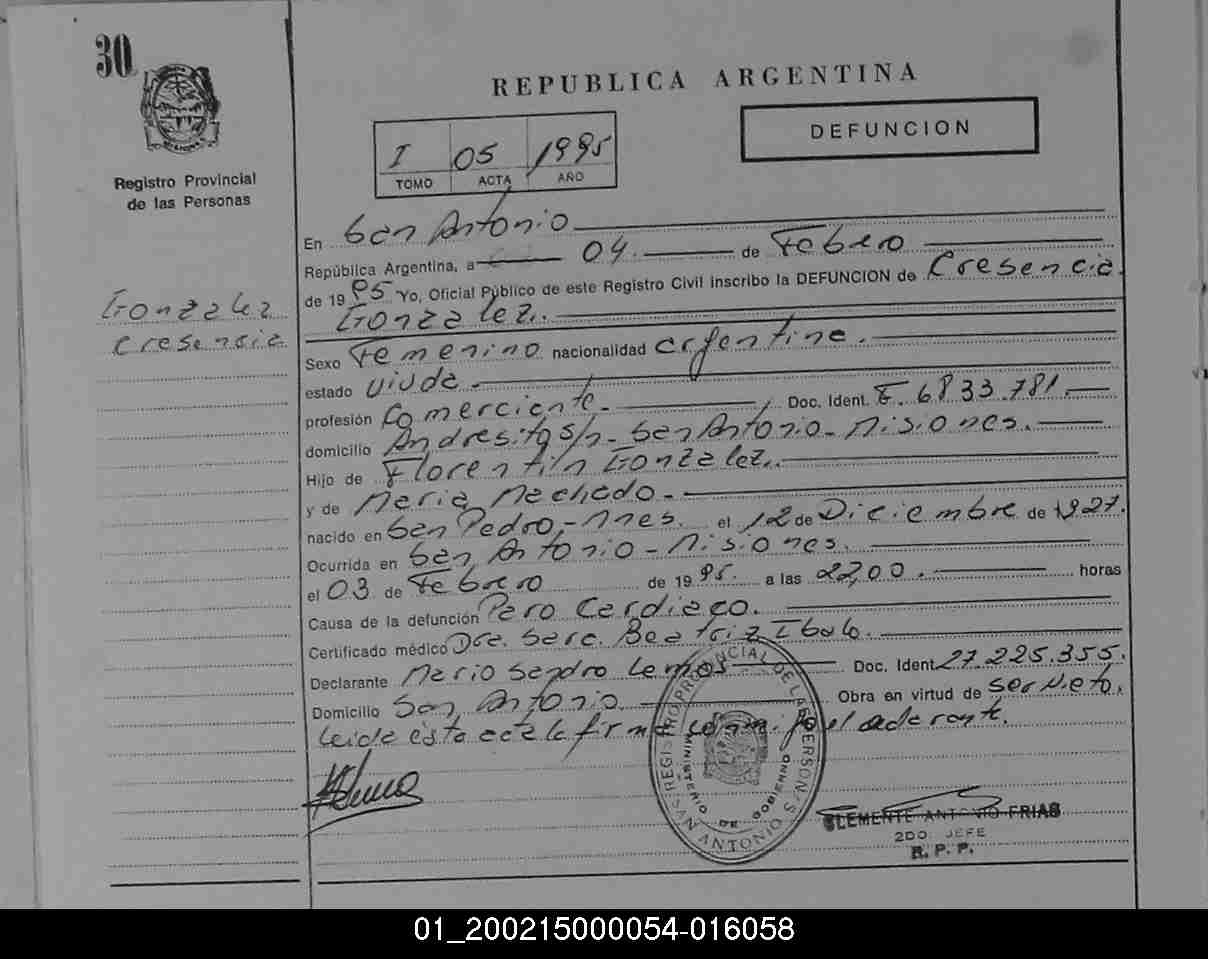 30
REPUBLICA ARGENTINA
I 05 1995
TOMO ACTA AÑO
DEFUNCION
Registro Provincial
de las Personas
En San Antonio
República Argentina, a 04. de Febrero
de 1995 Yo, Oficial Público de este Registro Civil inscribo la DEFUNCION de Cresencia
Gonzalez.
Gonzalez
Cresensia
Sexo Femenino nacionalidad argentina.
estado viuda.
profesión Comerciante. Doc. Ident. F. 6833.781.
domicilio Andresito s/n - San Antonio - Misiones.
Hijo de Florentín Gonzalez.
y de Maria Machado.
nacido en San Pedro, - Mnes. el 12 de Diciembre de 1927.
Ocurrida en San Antonio - Misiones.
el 03 de Febrero de 1995. a las 22,00. horas
Causa de la defunción Paro Cardiaco.
Certificado médico Dra. Sara Beatriz
Declarante Mario Sandro Lemos Doc. Ident. 27.225.355.
Domicilio San Antonio Obra en virtud de ser nieto.
Leida esta acta la firma conmigo el declarante.
REGISTRO PROVINCIAL DE LAS PERSONAS
MINISTERIO DE GOBIERNO
SAN ANTONIO
CLEMENTE ANTONIO FRIAS
2DO. JEFE
R. P. P.
01_200215000054-016058